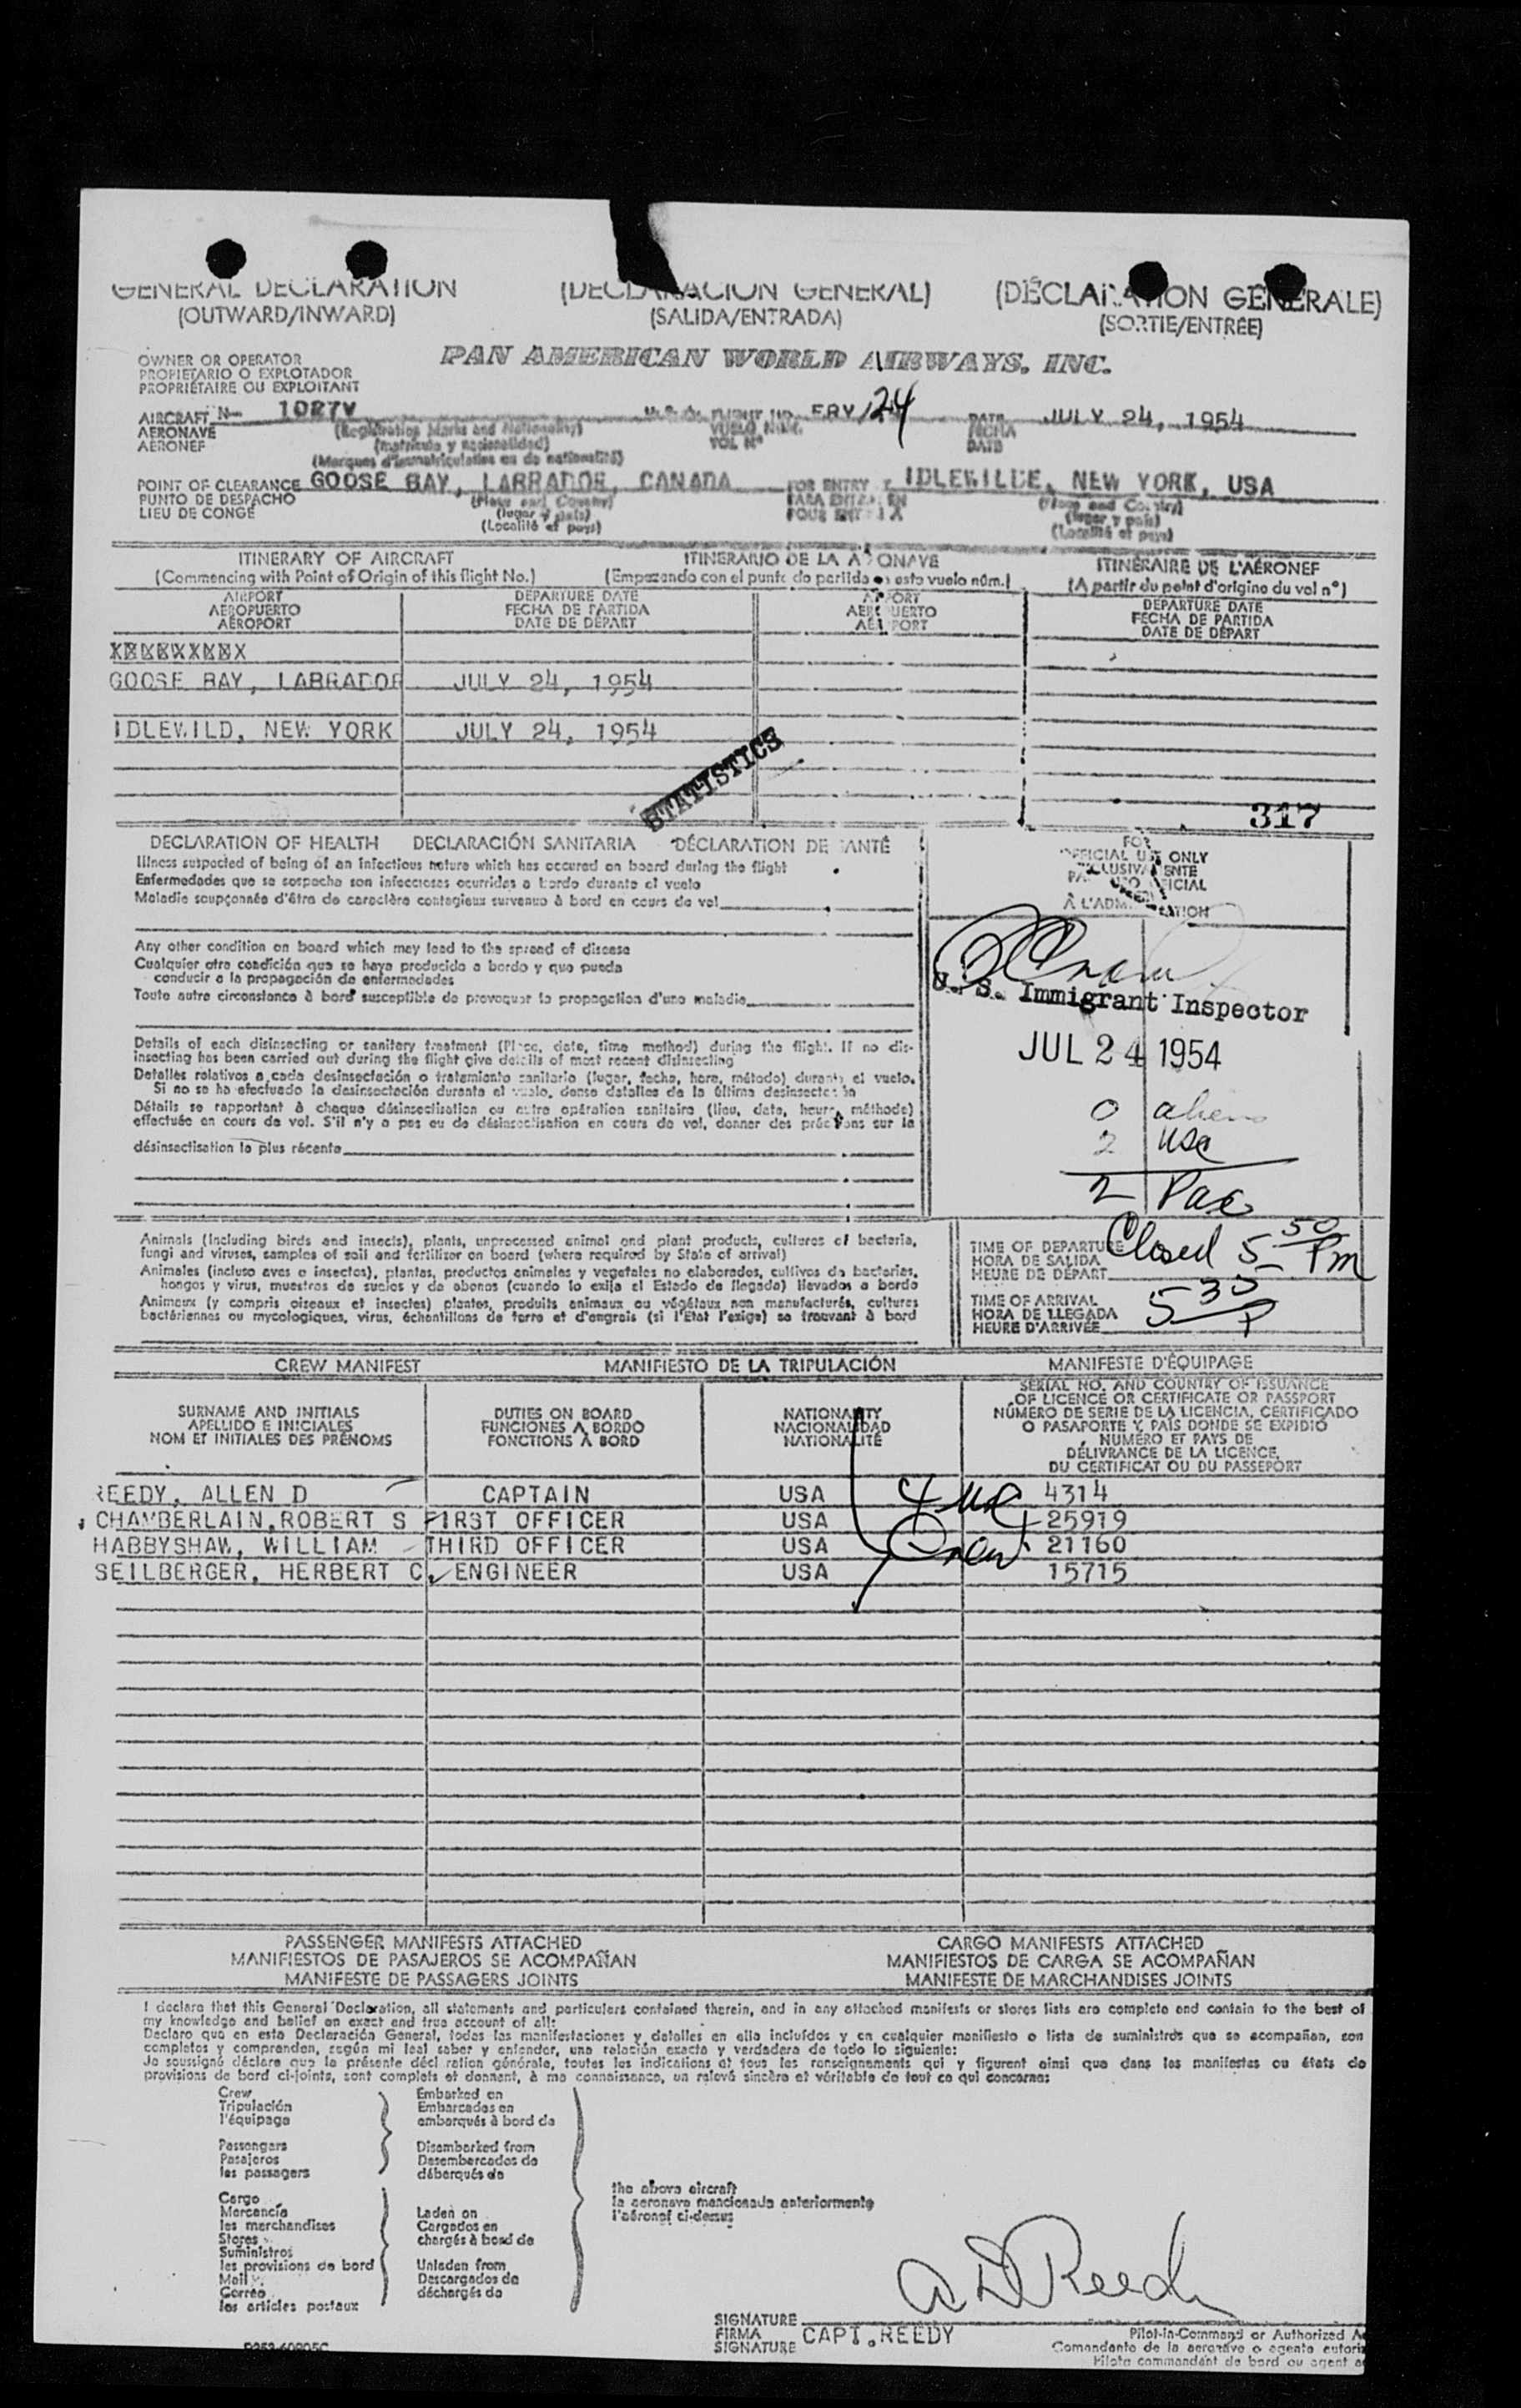 GENERAL DECLARATION (DECLARACION GENERAL) (DÉCLARATION GENERALE)
(OUTWARD/INWARD) (SALIDA/ENTRADA) (SORTIE/ENTRÉE)
OWNER OR OPERATOR
PROPIETARIO O EXPLOTADOR
PROPRIÉTAIRE OU EXPLOITANT
PAN AMERICAN WORLD AIRWAYS, INC.
AIRCRAFT N- 1027V FLIGHT NO. FRY 124 DATE JULY 24, 1954
AERONAVE (Registration Marks and Nationality) VUELO NÚM. FECHA
AERONEF (matrícula y nacionalidad) VOL Nº DATE
(Marques d'immatriculation ou de nationalité)
POINT OF CLEARANCE GOOSE BAY, LABRADOR, CANADA FOR ENTRY IDLEWILDE, NEW YORK, USA
PUNTO DE DESPACHO (Place and Country) (Place and Country)
LIEU DE CONGÉ (lugar y país) (lugar y país)
(Localité et pays) (Localité et pays)
ITINERARY OF AIRCRAFT ITINERARIO DE LA AERONAVE ITINÉRAIRE DE L'AÉRONEF
(Commencing with Point of Origin of this flight No.) (Empezando con el punto de partida de esta vuelo núm.) (A partir du point d'origine du vol nº)
AIRPORT DEPARTURE DATE AIRPORT DEPARTURE DATE
AEROPUERTO FECHA DE PARTIDA AEROPUERTO FECHA DE PARTIDA
AÉROPORT DATE DE DÉPART AÉROPORT DATE DE DÉPART
GOOSE BAY, LABRADOR JULY 24, 1954
IDLEWILD, NEW YORK JULY 24, 1954
STATISTICS
317
DECLARATION OF HEALTH DECLARACIÓN SANITARIA DÉCLARATION DE SANTÉ
Illness suspected of being of an infectious nature which has occured on board during the flight
Enfermedades que se sospecha son infecciosas ocurridas a bordo durante el vuelo
Maladie soupçonnée d'être de caractère contagieux survenue à bord en cours de vol
FOR
OFFICIAL USE ONLY
EXCLUSIVAMENTE
PARA USO OFICIAL
Any other condition on board which may lead to the spread of disease
Cualquier otra condición que se haya producido a bordo y que pueda
conducir a la propagación de enfermedades
Toute autre circonstance à bord susceptible de provoquer la propagation d'une maladie
U. S. Immigrant Inspector
JUL 24 1954
Details of each disinsecting or sanitary treatment (Place, date, time method) during the flight. If no dis-
insecting has been carried out during the flight give details of most recent disinsecting
Detalles relativos a cada desinsectación o tratamiento sanitario (lugar, fecha, hora, método) durante el vuelo.
Si no se ha efectuado la desinsectación durante el vuelo, dense detalles de la última desinsectación
Détails se rapportant à chaque désinsectisation ou autre opération sanitaire (lieu, date, heure, méthode)
effectuée en cours de vol. S'il n'y a pas eu de désinsectisation en cours de vol, donner des précisions sur la
désinsectisation la plus récente
0 aliens
2 USC
2 Pax
Animals (including birds and insects), plants, unprocessed animal and plant products, cultures of bacteria,
fungi and viruses, samples of soil and fertilizer on board (where required by State of arrival)
Animales (incluso aves e insectos), plantas, productos animales y vegetales no elaborados, cultivos de bacterias,
hongos y virus, muestras de suelos y de abonos (cuando lo exija el Estado de llegada) llevados a bordo
Animaux (y compris oiseaux et insectes) plantes, produits animaux ou végétaux non manufacturés, cultures
bactériennes ou mycologiques, virus, échantillons de terre et d'engrais (si l'Etat l'exige) se trouvant à bord
TIME OF DEPARTURE Closed 5 50 Pm
HORA DE SALIDA
HEURE DE DÉPART
TIME OF ARRIVAL 5 35 P
HORA DE LLEGADA
HEURE D'ARRIVÉE
CREW MANIFEST MANIFIESTO DE LA TRIPULACIÓN MANIFESTE D'ÉQUIPAGE
SURNAME AND INITIALS
APELLIDO E INICIALES
NOM ET INITIALES DES PRÉNOMS
DUTIES ON BOARD
FUNCIONES A BORDO
FONCTIONS À BORD
NATIONALITY
NACIONALIDAD
NATIONALITÉ
SERIAL NO. AND COUNTRY OF ISSUANCE
OF LICENCE OR CERTIFICATE OR PASSPORT
NÚMERO DE SERIE DE LA LICENCIA, CERTIFICADO
O PASAPORTE Y PAÍS DONDE SE EXPIDIÓ
NUMÉRO ET PAYS DE
DÉLIVRANCE DE LA LICENCE,
DU CERTIFICAT OU DU PASSEPORT
REEDY, ALLEN D CAPTAIN USA 4314
CHAMBERLAIN, ROBERT S FIRST OFFICER USA 25919
HABBYSHAW, WILLIAM THIRD OFFICER USA 21160
SEILBERGER, HERBERT C ENGINEER USA 15715
4 USC
PASSENGER MANIFESTS ATTACHED CARGO MANIFESTS ATTACHED
MANIFIESTOS DE PASAJEROS SE ACOMPAÑAN MANIFIESTOS DE CARGA SE ACOMPAÑAN
MANIFESTE DE PASSAGERS JOINTS MANIFESTE DE MARCHANDISES JOINTS
I declare that this General Declaration, all statements and particulars contained therein, and in any attached manifests or stores lists are complete and contain to the best of
my knowledge and belief an exact and true account of all:
Declaro que en esta Declaración General, todas las manifestaciones y detalles en ella incluídos y en cualquier manifiesto o lista de suministros que se acompañan, son
completos y comprenden, según mi leal saber y entender, una relación exacta y verdadera de todo lo siguiente:
Je soussigné déclare que la présente déclaration générale, toutes les indications et tous les renseignements qui y figurent ainsi que dans les manifestes ou états de
provisions de bord ci-joints, sont complets et donnent, à ma connaissance, un relevé sincère et véritable de tout ce qui concerne:
Crew
Tripulación
l'équipage
Passengers
Pasajeros
les passagers
Embarked on
Embarcados en
embarqués à bord de
Disembarked from
Desembarcados de
débarqués de
Cargo
Mercancía
les marchandises
Stores
Suministros
les provisions de bord
Mail
Correo
les articles postaux
Laden on
Cargados en
chargés à bord de
Unladen from
Descargados de
déchargés de
the above aircraft
la aeronave mencionada anteriormente
l'aéronef ci-dessus
A D Reedy
SIGNATURE
FIRMA CAPT. REEDY
SIGNATURE
Pilot-in-Command or Authorized A
Comandante de la aeronave o agente autoriz
Pilote commandant de bord ou agent a